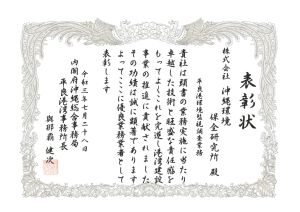 表彰状
株式会社 沖縄環境
保全研究所 殿
平良港環境監視調査業務
貴社は頭書の業務実施に当たり
卓越した技術と旺盛な責任感を
もってよくこれを完遂し港湾建設
事業の推進に貢献されました
その功績は誠に顕著であります
よってここに優良業務業者として
表彰します
令和三年七月二十八日
内閣府沖縄総合事務局
平良港湾事務所長
與那覇 健次